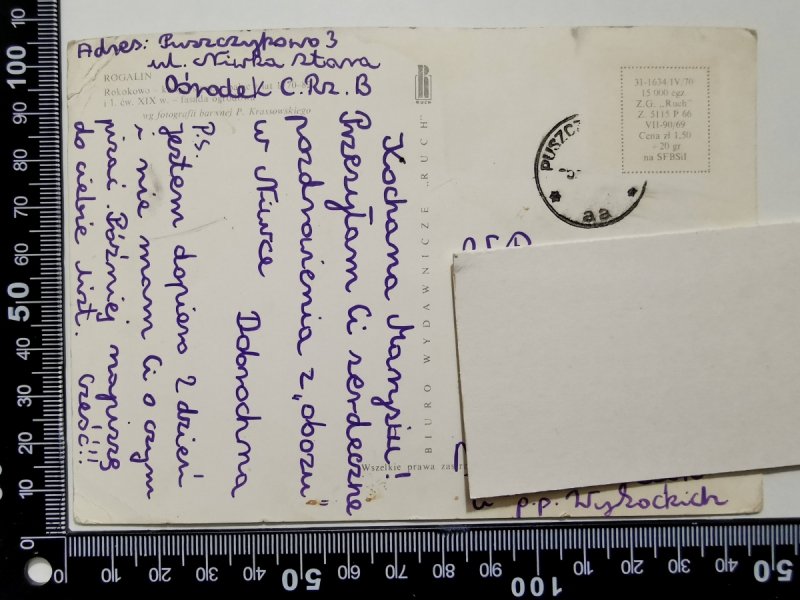 Adres: Puszczykowo 3
ul. Niwka Stara
Ośrodek C.Rz.B
ROGALIN
Rokokowo -
i 1. ćw. XIX w. – fasada ogrodowa
wg fotografii barwnej P. Krassowskiego
Kochana Marysiu!
Przesyłam Ci serdeczne
pozdrowienia z „obozu"
w Niwce Dobrochna
P.S.
Jestem dopiero 2 dzień
i nie mam Ci o czym
pisać. Później napiszę
do ciebie list. Cześć!!!
BIURO WYDAWNICZE „RUCH"
RUCH
Wszelkie prawa
31-1634/IV/70
15 000 egz.
Z.G. „Ruch"
Z. 5115 P 66
VII-90/69
Cena zł 1,50
+ 20 gr
na SFBSiI
PUSZCZ
aa
u p.p. Wysockich
0 10 20 30 40 50 60 70 80 90 100 10
0 10 20 30 40 50 60 70 80 90 100 10 20 30 40 50